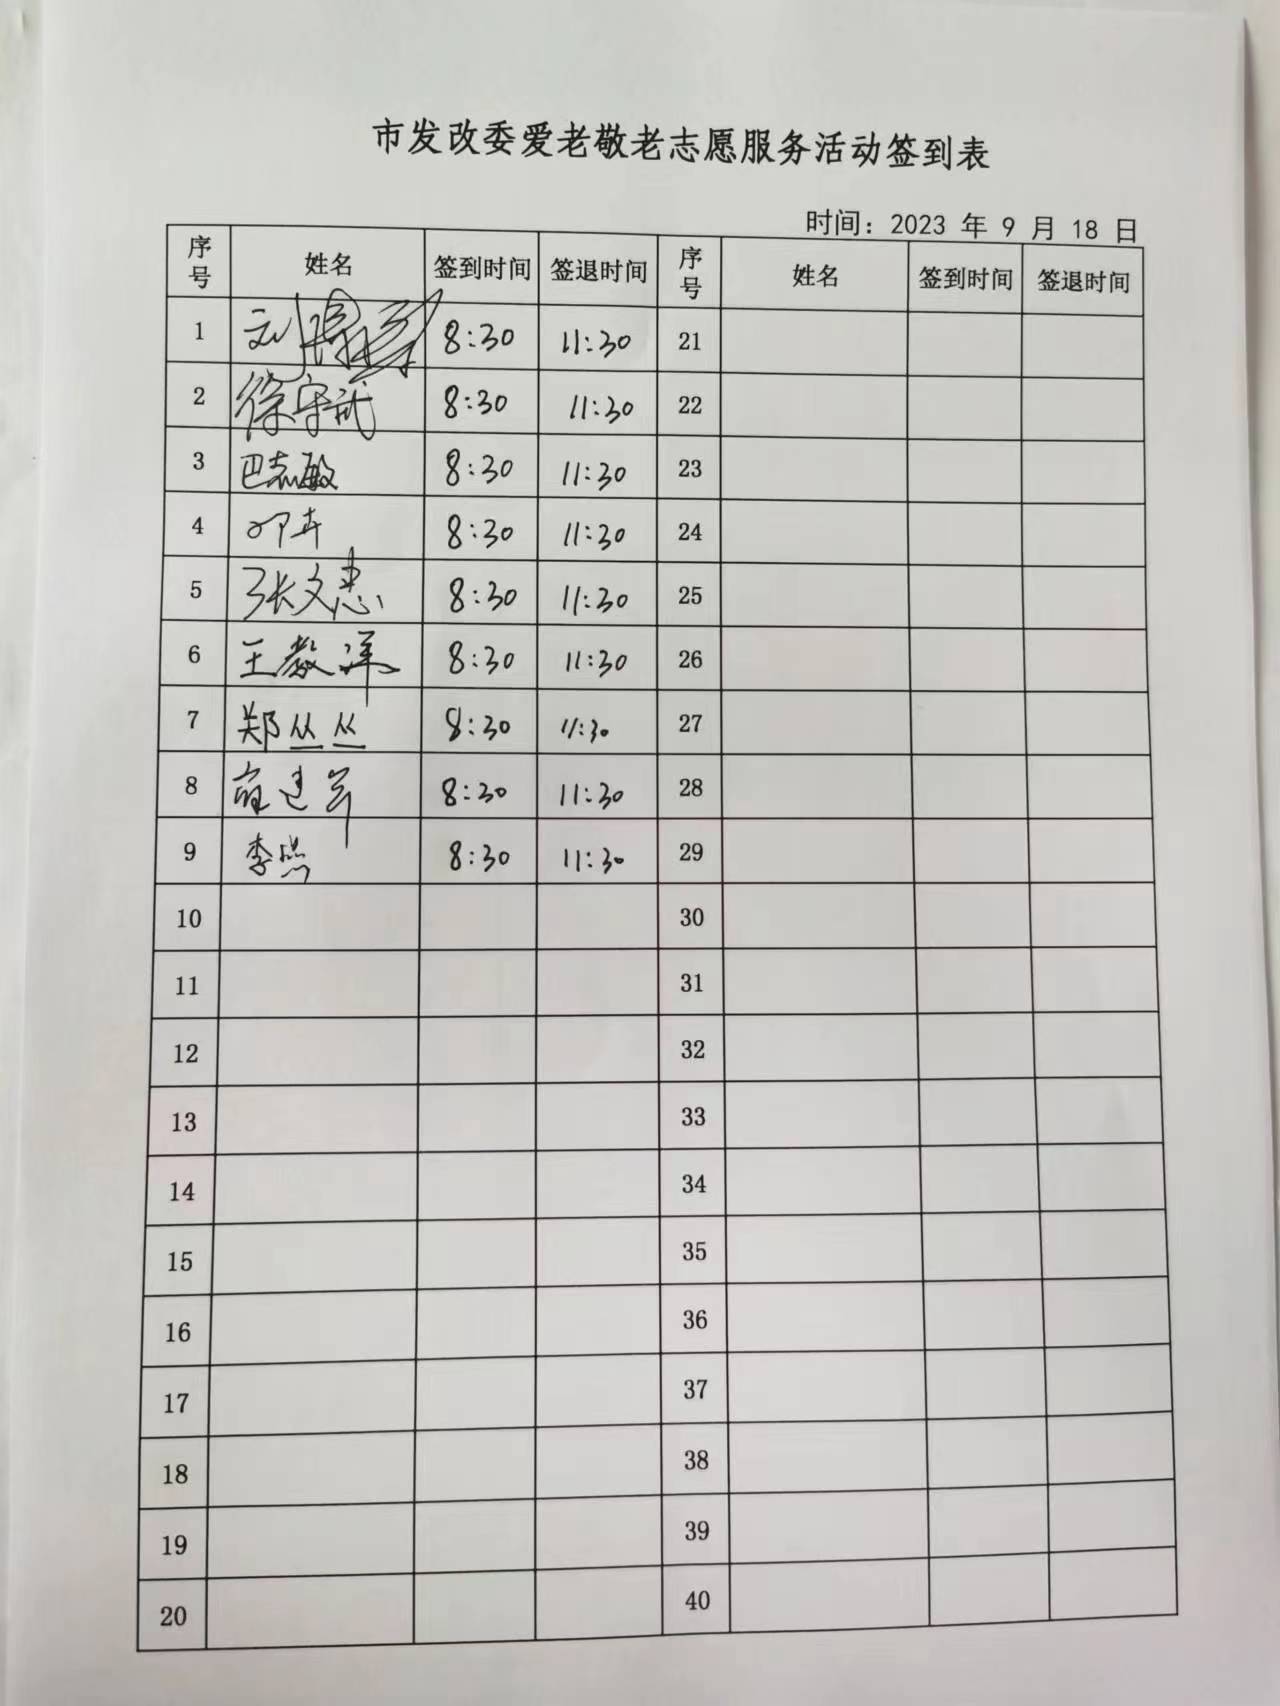 市发改委爱老敬老志愿服务活动签到表
时间：2023 年 9 月 18 日
序号 姓名 签到时间 签退时间 序号 姓名 签到时间 签退时间
1 刘 8:30 11:30 21
2 徐守武 8:30 11:30 22
3 巴志敏 8:30 11:30 23
4 8:30 11:30 24
5 张文惠 8:30 11:30 25
6 王教洋 8:30 11:30 26
7 郑丛丛 8:30 11:30 27
8 8:30 11:30 28
9 李 8:30 11:30 29
10 30
11 31
12 32
13 33
14 34
15 35
16 36
17 37
18 38
19 39
20 40